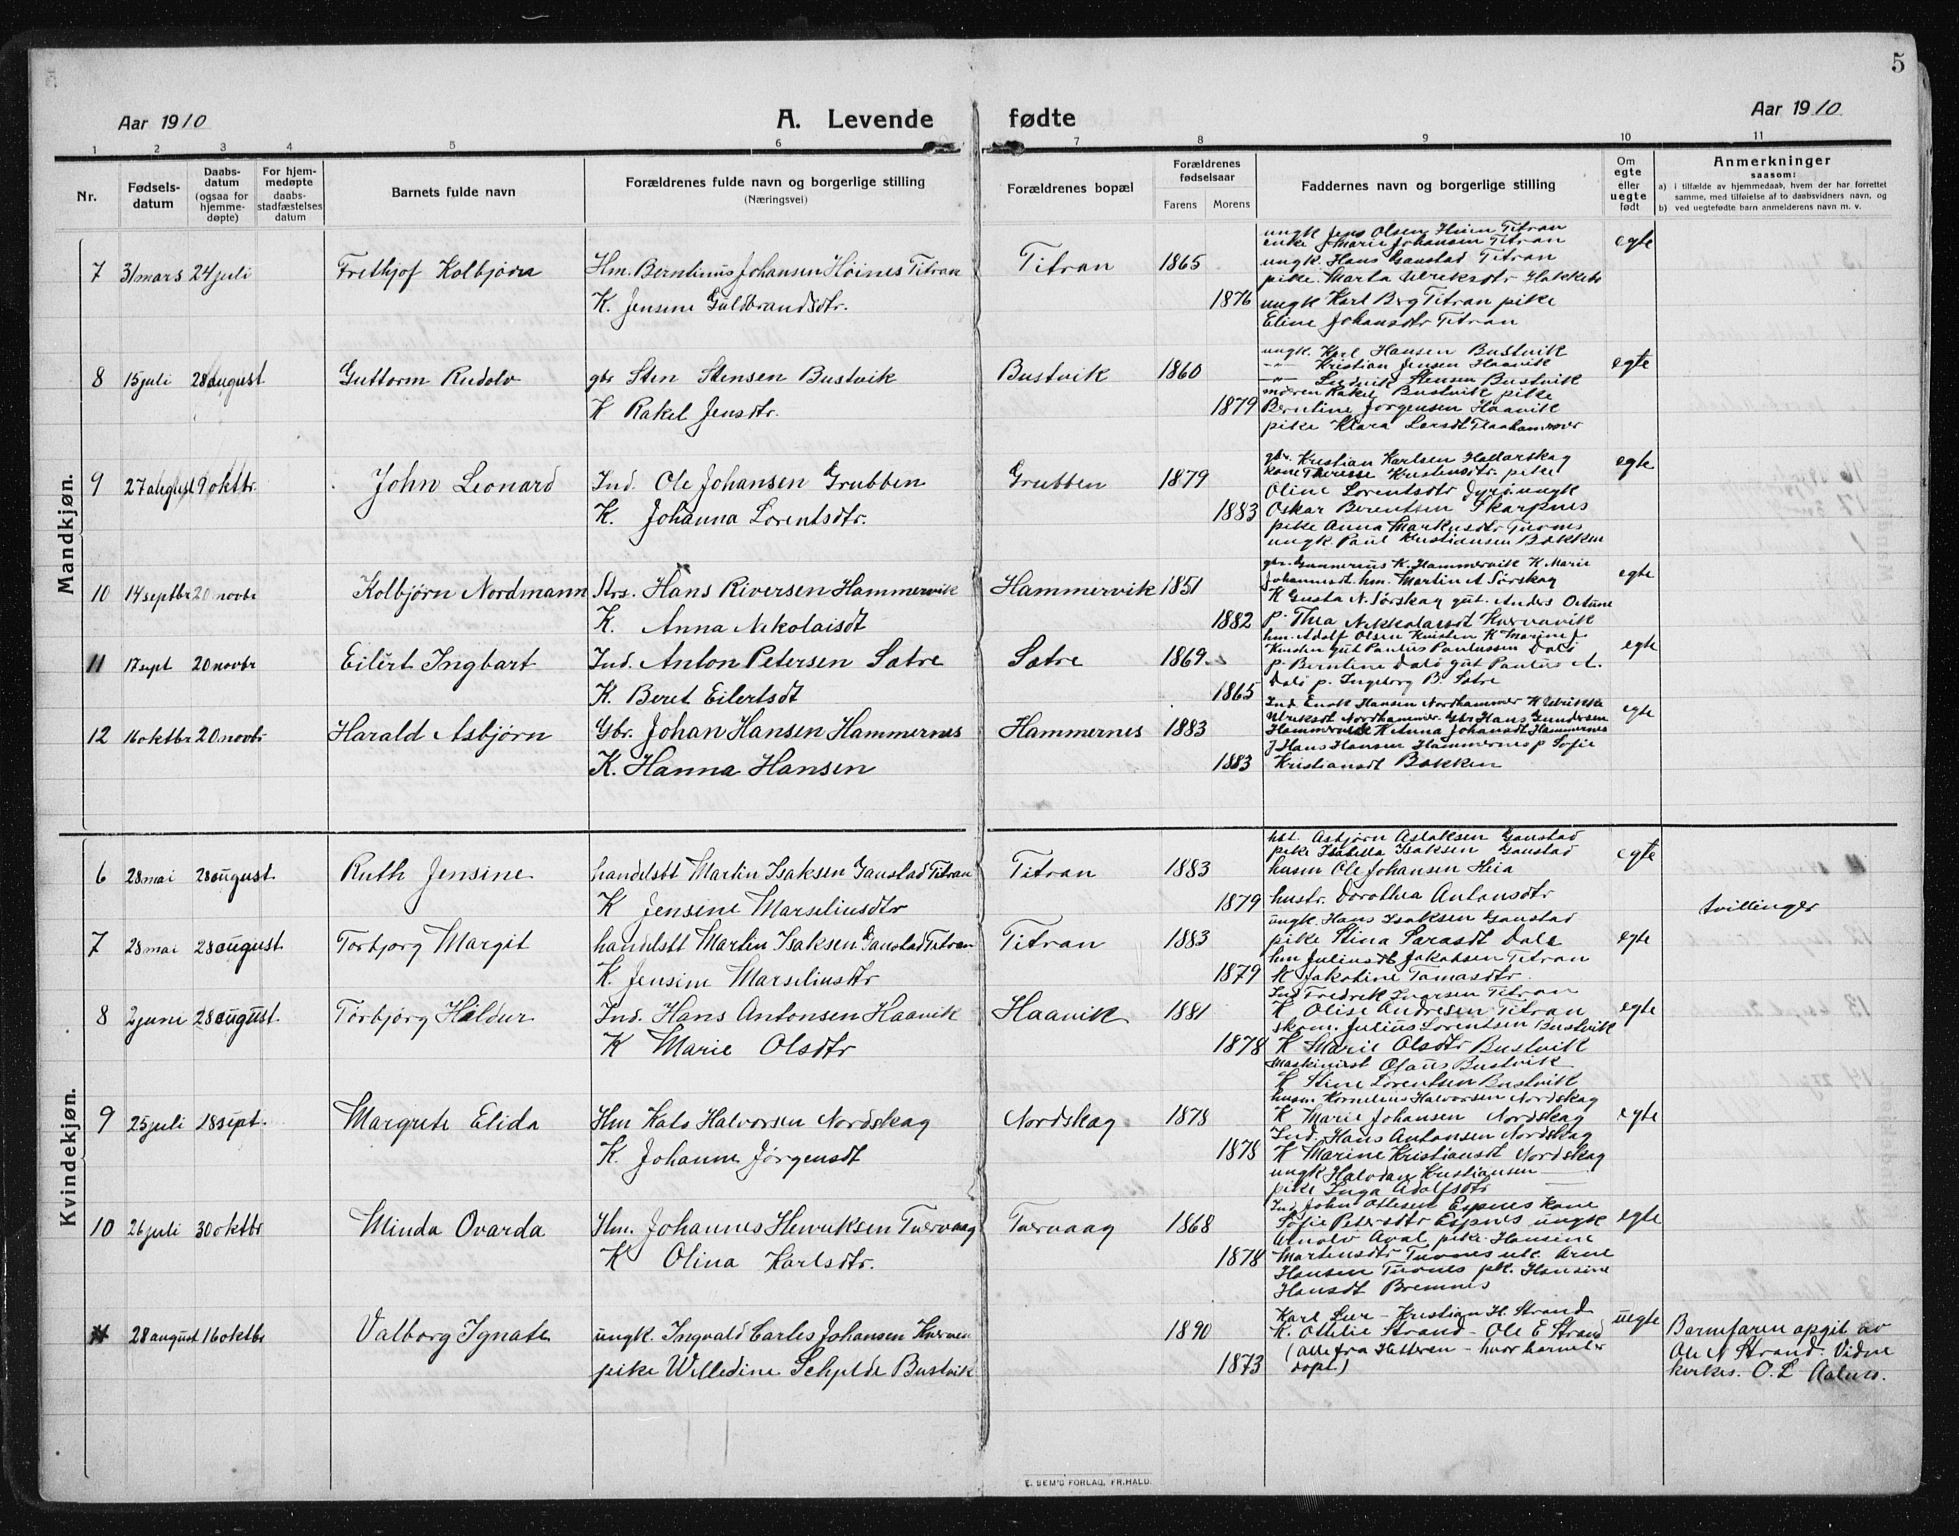 5
Aar 1910
A. Levende fødte
Aar 1910
1 2 3 4 5 6 7 8 9 10 11
Nr.
Fødsels-
datum
Daabs-
datum
(ogsaa for
hjemme-
døpte)
For hjem-
medøpte
daabs-
stadfæstelses
datum
Barnets fulde navn
Forældrenes fulde navn og borgerlige stilling
(Næringsvei)
Forældrenes bopæl
Forældrenes
fødselsaar
Farens Morens
Faddernes navn og borgerlige stilling
Om
egte
eller
uegte
født
Anmerkninger
saasom:
a) i tilfælde av hjemmedaab, hvem der har forrettet
samme, med tilføielse af to daabsvidners navn, og
b) ved uegtefødte barn anmelderens navn m. v.
Mandkjøn.
7 31 mars 24 juli Frethjof Kolbjörn Hm. Berntinus Johansen Höines Titran Titran 1865 egte
K. Jensine Guldbrandsdtr. 1876
ungk Jens Olsen Heien Titran
enke Marie Johansen Titran
ungk. Hans Gaustad Titran
pike. Marta Ulriksdtr Hakkebo
ungk Karl Berg Titran pike
Eline Johansdtr Titran
8 15 juli 28 august Guttorm Rudolv gbr Sten Stensen Bustvik Bustvik 1860 egte
K Rakel Jensdtr. 1879
ungk. Karl Hansen Bustvik
-"- Kristian Jensen Haavik
-"- Ludvik Stensen Bustvik
moren Rakel Bustvik pike
Berntine Jörgensen Haavik
pike Klara Larsdt Flaahammer
9 27 august 9 oktbr. John Leonard Ind. Ole Johansen Grubben Grubben 1879 egte
K. Johanna Lorentsdtr. 1883
gbr. Kristian Karlsen Hallarskag
kone Therese Kristensdtr. pike
Oline Lorentsdtr Dyrö ungk
Oskar Berentsen Skarpnes
pike Anna Markusdtr Tuvnes
ungk Paul Kristiansen Bakken
10 14 septbr 20 novbr Kolbjörn Nordmann Strs. Hans Riversen Hammervik Hammervik 1851 egte
K. Anna Nikolaisdt 1882
gbr. Gunnerius K. Hammervik K. Marie
Johannesdt. hm. Martin A Sörskag
K Gusta N. Sörskag gut. Anders
p. Thea Nikkolaisdt Kvernavik
11 17 sept 20 novbr Eilert Ingbart Ind. Anton Petersen Sætre Sætre 1869 egte
K. Beret Eilertsdt 1865
hm. Adolf Olsen Kvisten K Marine J.
Kvisten gut Paulus Paulussen Dalö
p. Berntine Dalö gut Paulus A.
Dalö p. Ingeborg B. Sætre
12 16 oktbr 20 novbr Harald Asbjörn Gbr. Johan Hansen Hammernes Hammernes 1883 egte
K. Hanna Hansen 1883
Ind. Enok Hansen Nordhammer K Ulrikke
Ulriksdt Nordhammer. Gbr Hans Gundersen
Hammervik K Anna Johansdt Hammernes
J Hans Hansen Hammernes p Sofie
Kristiansdt Bakken
Kvindekjøn.
6 28 mai 28 august Ruth Jensine handelsbt Martin Isaksen Gaustad Titran Titran 1883 egte
K Jensine Marseliusdtr 1879
hbt. Asbjörn Aslaksen Gaustad
pike Isabella Isaksen Gaustad
husm Ole Johansen Heia
hustr. Dorothea Antonsdtr
tvillinger
7 28 mai 28 august Torbjorg Margit handelsbt Martin Isaksen Gaustad Titran Titran 1883 egte
K. Jensine Marseliusdtr 1879
ungk. Hans Isaksen Gaustad
pike Stina Larasdt Dale
hm Julius Jakobsen Titran
K Jakobine Tomasdtr.
8 2 juni 28 august Torbjorg Haldur Ind. Hans Antonsen Haavik Haavik 1881 egte
K Marie Olsdtr 1878
Ind Fredrik Ivarsen Titran
K Olise Andresen Titran
skom. Julius Lorentsen Bustvik
K Marie Olsdtr Bustvik
Maskinist Olaus Bustvik
K Stine Lorentsen Bustvik
9 25 juli 18 sept. Margrete Elida Hm Kalo Halvorsen Nordskag Nordskag 1878 egte
K. Johanne Jörgensdt 1878
husm Kornelius Halvorsen Nordskag
K Marie Johansen Nordskag
Ind. Hans Antonsen Nordskag
K Marine Kristiansdt Nordskag
ungk Halvdan Kristiansen —
pike Inga Adolfsdtr —
10 26 juli 30 oktbr Minda Ovarda Hm. Johannes Henriksen Tværvaag Tværvaag 1868 egte
K Olina Karlsdtr. 1878
Ind John Ottesen Espnes kone
Sofie Petersdtr Espnes ungk
Arnolv Aval pike Hansine
Martinsdtr Tuvnes uk. Arne
Hansen Tuvnes pk. Hansine
Hansdt Bremnes
11 28 august 16 oktbr Valborg Ignate ungk. Ingvald Carles Johansen Kverven 1890 uegte
pike Willedine Schjelde Bustvik 1873
Karl Lier - Kristian H. Strand
K. Ottilie Strand - Ole E Strand
(alle fra Hitteren - hvor barnet er
döpt)
Barnefaren opgit av
Ole N Strand. Vidne
kirkes. O. L
E. SEM'S FORLAG, FR.HALD.